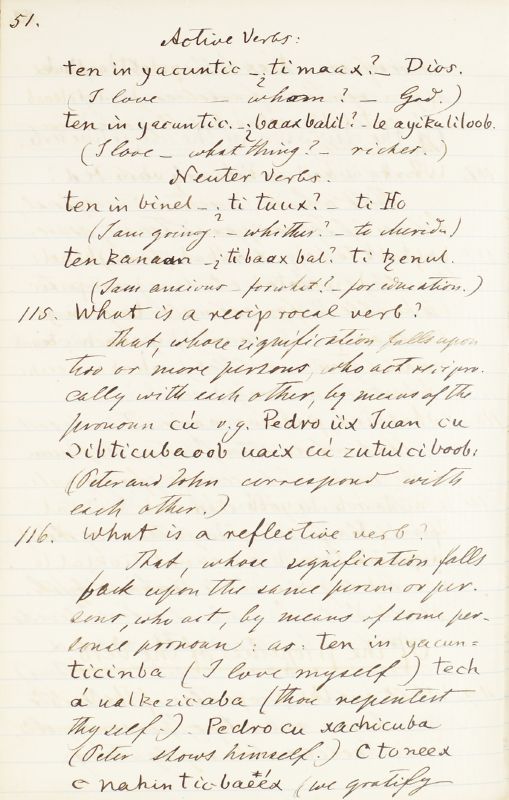 51.
Active Verbs:
ten in yacuntic - ¿ti maax? - Dios.
(I love - whom? - God.)
ten in yacuntic. - ¿baax balil? - le ayikaliloob.
(I love - what thing? - riches.)
Neuter Verbs.
ten in binel - ¿ti tuux? - ti Ho
(I am going? - whither? - to Merida)
ten kanaan - ¿ti baax bal? ti tzenul.
(I am anxious - for what? - for education.)
115. What is a reciprocal verb?
That, whose signification falls upon
two or more persons, who act recipro-
cally with each other, by means of the
pronoun cú v.g. Pedro üx Juan cu
ɔibticubaoob uaix cú zutulciboob:
(Peter and John correspond with
each other.)
116. What is a reflective verb?
That, whose signification falls
back upon the same person or per-
sons, who act, by means of some per-
sonal pronoun: as: ten in yacun=
ticinba (I love myself) tech
á ualkezicaba (thou repentest
thyself.) Pedro cu xachicuba
(Peter shows himself.) C toneex
c nahinticbaéex (we gratify